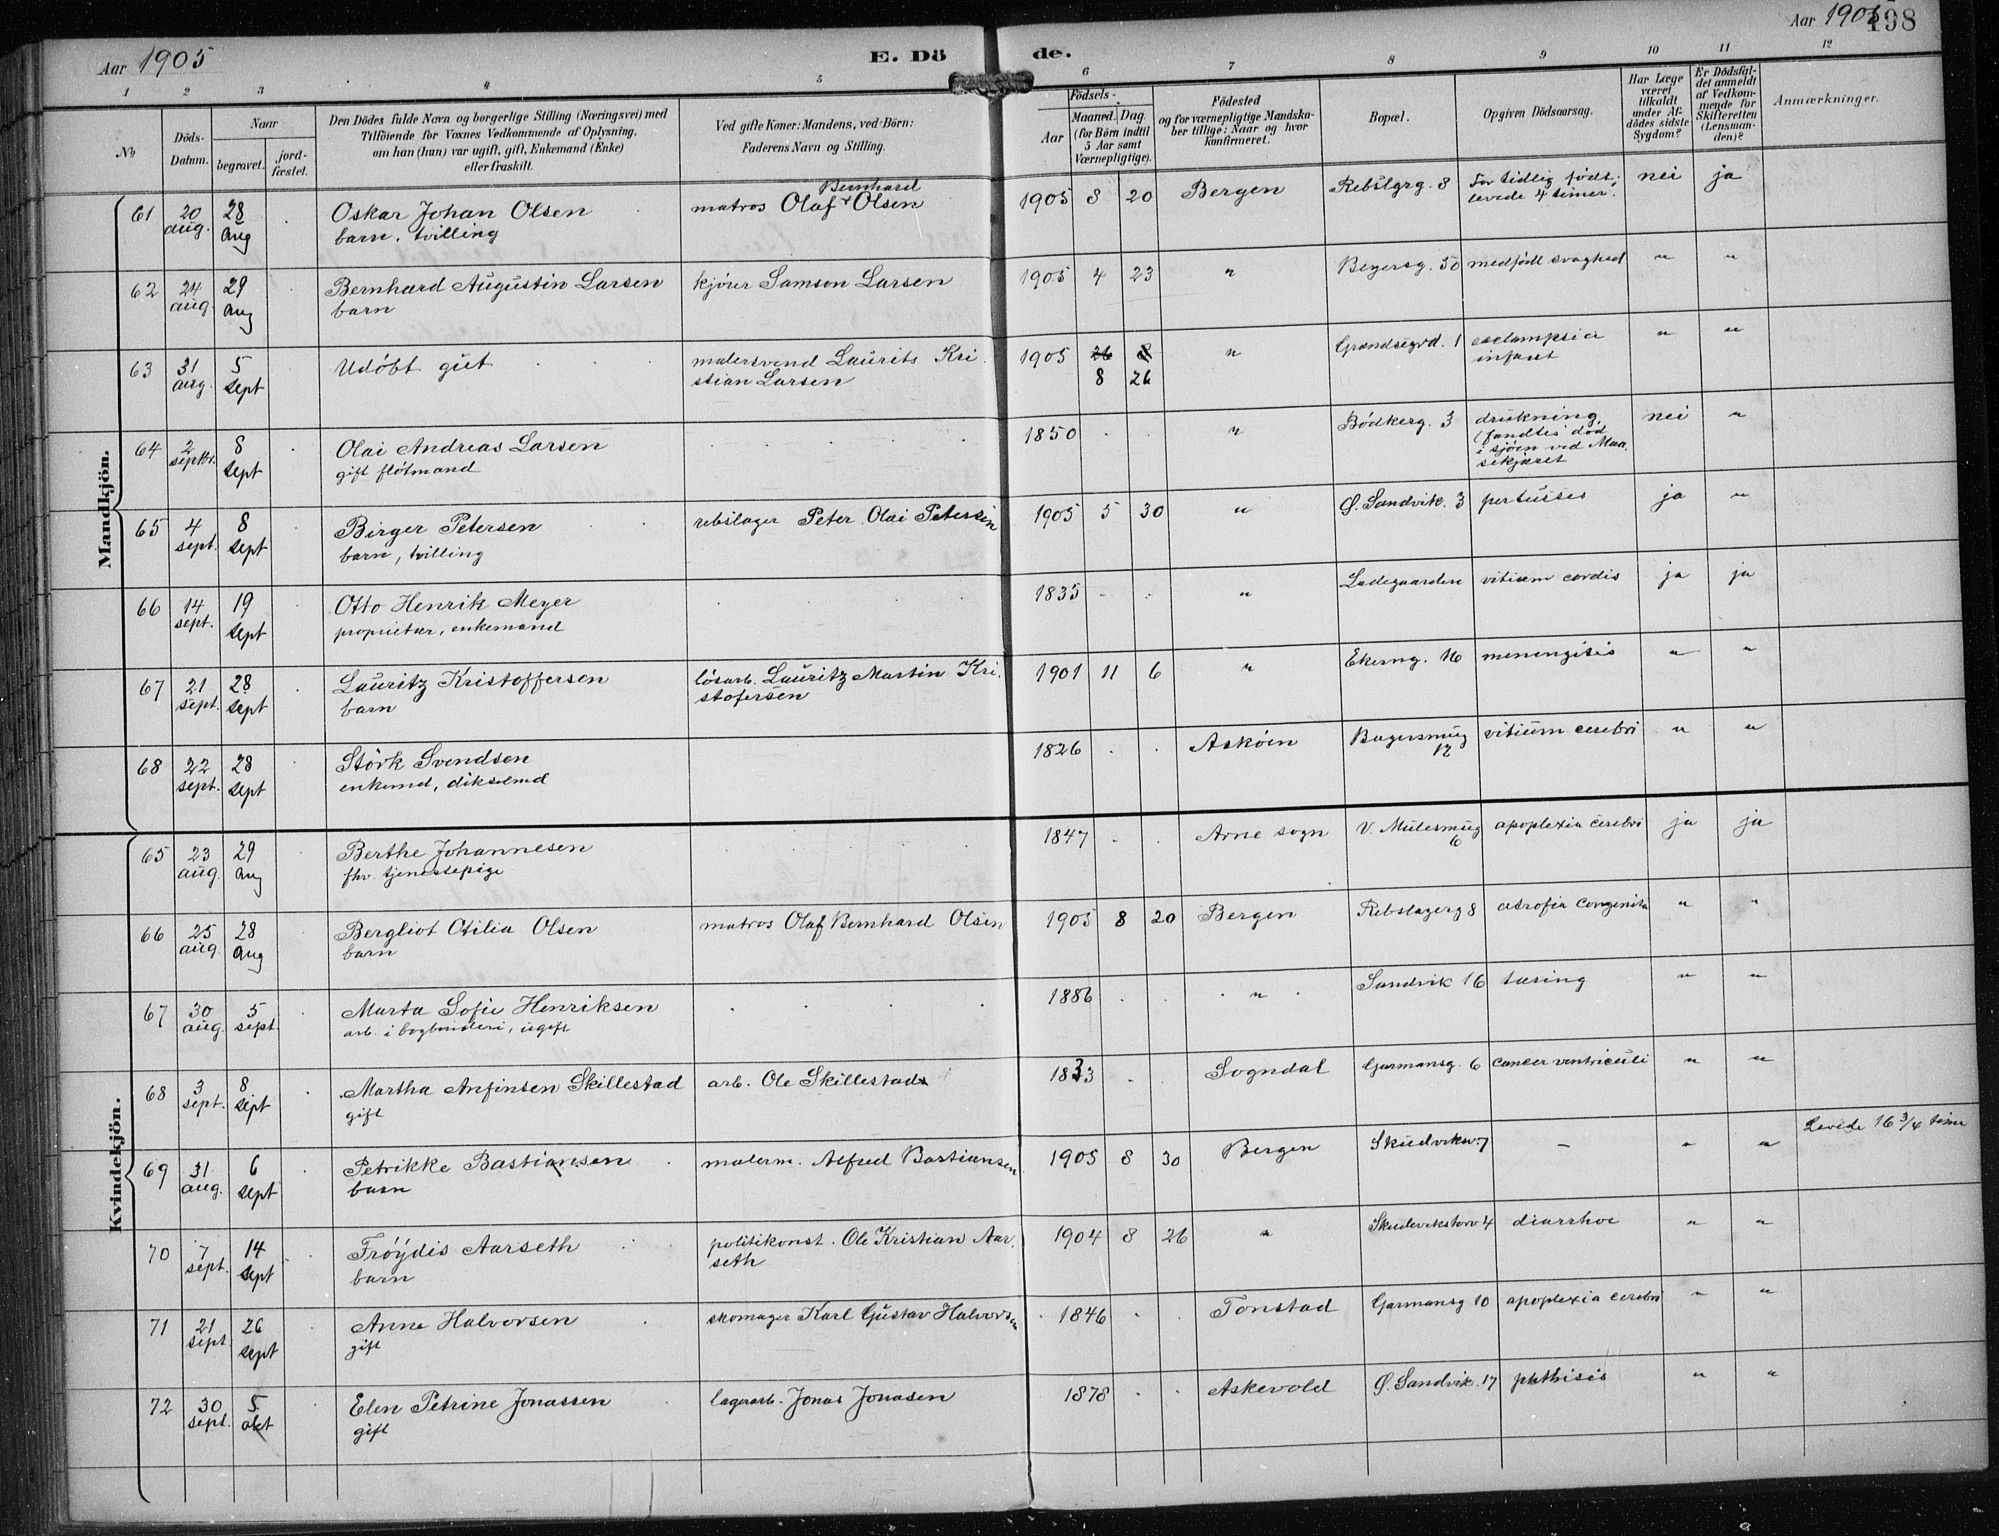 Aar 1905
E. Dö
de.
Aar 1905
198
1 2 3 4 5 6 7 8 9 10 11 12
No
Döds-Datum.
Naar
begravet.
jordfæstet.
Den Dödes fulde Navn og borgerlige Stilling (Næringsvei) med
Tilföiende for Voxnes Vedkommende af Oplysning,
om han (hun) var ugift, gift, Enkemand (Enke)
eller fraskilt.
Ved gifte Koner: Mandens, ved Börn:
Faderens Navn og Stilling.
Födsels-
Aar
Maaned. Dag.
(for Börn indtil
5 Aar samt
Værnepligtige).
Födested
og for værnepligtige Mandska-
ber tillige: Naar og hvor
konfirmeret.
Bopæl.
Opgiven Dödsaarsag.
Har Læge
været
tilkaldt
under Af-
dödes sidste
Sygdom?
Er Dödsfal-
det anmeldt
af Vedkom-
mende for
Skifteretten
(Lensman-
den)?
Anmærkninger.
Mandkjön.
61 20 aug. 28 aug Oskar Johan Olsen matros Olaf Bernhard Olsen 1905 8 20 Bergen Rebslgrg. 8 For tidlig födt; nei ja
barn, tvilling levede 4 timer.
62 24 aug. 29 aug Bernhard Augustin Larsen kjörer Samson Larsen 1905 4 23 " Beyersg. 50 medfödt svaghed " "
barn
63 31 aug. 5 sept Udöbt gut malersvend Laurits Kri- 1905 26 8 " Grandsegrd. 1 eclampsia " "
stian Larsen 8 26 infant
64 2 septbr. 8 sept Olai Andreas Larsen 1850 " Bödkerg. 3 drukning nei "
gift flötmand (fandtes död
i sjöen ved Maa-
sekjæret
65 4 sept. 8 sept Birger Petersen rebslager Peter Olai Petersen 1905 5 30 " Ø. Sandvik. 3 pertusses ja "
barn, tvilling
66 14 sept. 19 sept Otto Henrik Meyer 1835 " Ladegaarden vitium cordis ja ja
proprietær, enkemand
67 21 sept. 28 sept Lauritz Kristoffersen lösarb. Lauritz Martin Kri- 1901 11 6 " Ekerng. 16 menengitis " "
barn stofersen
68 22 sept. 28 sept Störk Svendsen 1826 Askøen Bagersmug 12 vitium cerebri " "
enkemd,
Kvindekjön.
65 23 aug. 29 aug Berthe Johannesen 1847 Arne sogn V. Mulesmug 6 apoplexia cerebri ja ja
fhv. tjenestepige
66 25 aug. 28 aug Bergliot Otilia Olsen matros Olaf Bernhard Olsen 1905 8 20 Bergen Rebslagerg 8 atrofia congenita " "
barn
67 30 aug. 5 sept. Marta Sofie Henriksen 1886 " Sandvik 16 tæring " "
arb. i bogbinderi, ugift
68 3 sept. 8 sept Martha Anfinsen Skillestad arb. Ole Skillestad 1833 Sogndal Garmansg. 6 cancer ventriculi " "
gift
69 31 aug. 6 sept Petrikke Bastiansen malerm. Alfred Bastiansen 1905 8 30 Bergen Skudvikv. 7 — " " Levede 16 3/4 time
barn
70 7 sept. 14 sept Fröydis Aarseth politikonst. Ole Kristian Aar- 1904 8 26 " Skudevikstorv 4 diarrhoe " "
barn seth
71 21 sept 26 sept Anne Halvorsen skomager Karl Gustav Halvorsen 1846 Tonstad Garmansg 10 apoplexia cerebri " "
gift
72 30 sept. 5 okt Elen Petrine Jonassen lagerarb. Jonas Jonasen 1878 Askevold Ø. Sandvik. 17 phthisis " "
gift